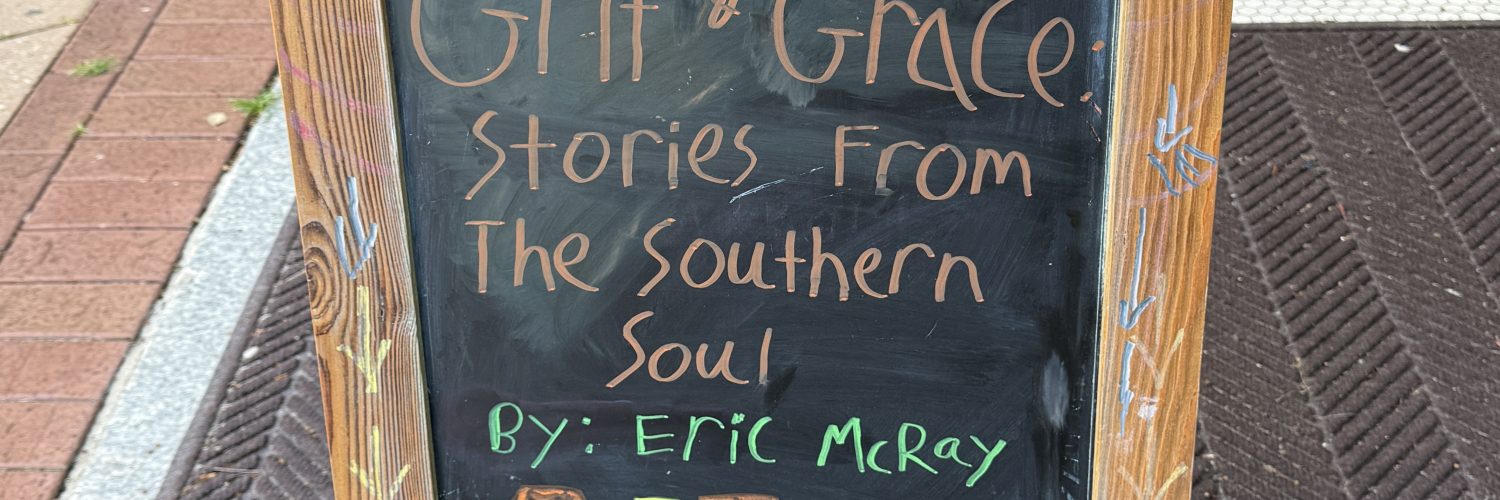 Grit & Grace:
Stories From
The Southern
Soul
By: Eric McRay